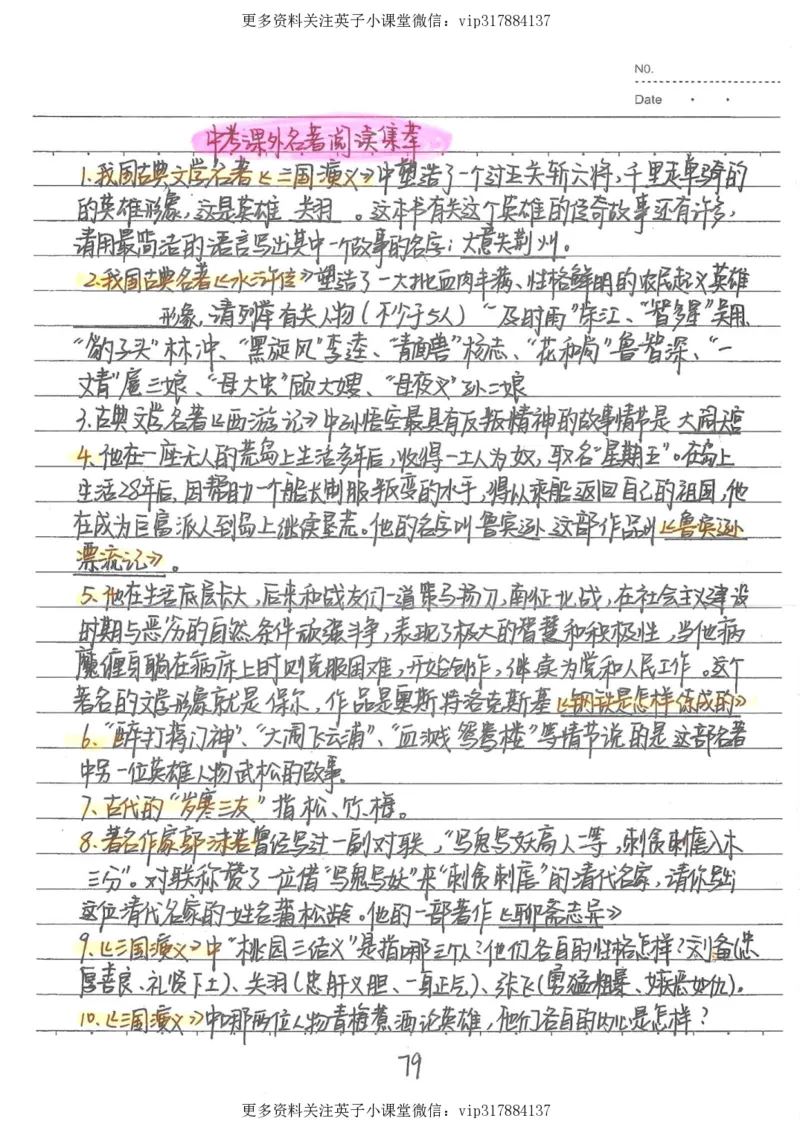 更多资料关注英子小课堂微信：vip317884137
NO.
Date
中考课外名著阅读集萃
1.我国古典文学名著《三国演义》中塑造了一个过五关斩六将，千里走单骑的
的英雄形象，这是英雄 关羽 。这本书有关这个英雄的传奇故事还有许多，
请用最简洁的语言写出其中一个故事的名字：大意失荆州。
2.我国古典名著《水浒传》塑造了一大批血肉丰满、性格鲜明的农民起义英雄
形象，请列举有关人物（不少于5人）～及时雨"宋江、"智多星"吴用、
"豹子头"林冲、"黑旋风"李逵、"青面兽"杨志、"花和尚"鲁智深、"一
丈青"扈三娘、"母大虫"顾大嫂、"母夜叉"孙二娘
3.古典文学名著《西游记》中孙悟空最具有反叛精神的故事情节是 大闹天宫
4.他在一座无人的荒岛上生活多年后，收得一土人为奴，取名"星期五"。在岛上
生活28年后，因帮助一个船长制服叛变的水手，得以乘船返回自己的祖国，他
在成为巨富派人到岛上继续垦荒。他的名字叫 鲁宾逊 这部作品叫《鲁宾逊
漂流记》。
5.他在生活底层长大，后来和战友们一道策马扬刀，南征北战，在社会主义建设
时期与恶劣的自然条件顽强斗争，表现了极大的智慧和积极性，当他病
魔缠身躺在病床上时则克服困难，开始创作，继续为党和人民工作。这个
著名的文学形象就是 保尔，作品是奥斯特洛克斯基《钢铁是怎样练成的》
6."醉打蒋门神"、"大闹飞云浦"、"血溅鸳鸯楼"等情节说的是这部名著
中另一位英雄人物武松的故事。
7.古代的"岁寒三友"指松、竹、梅。
8.著名作家郭沫若曾经写过一副对联，"写鬼写妖高人一等，刺贪刺虐入木
三分"。对联称赞了一位借"写鬼写妖"来"刺贪刺虐"的清代名家，请你写出
这位清代名家的姓名蒲松龄。他的一部著作《聊斋志异》
9.《三国演义》中"桃园三结义"是指哪三个人？他们各自的性格怎样？刘备（忠
厚善良、礼贤下士）、关羽（忠肝义胆、一身正气）、张飞（勇猛粗暴、嫉恶如仇）。
10.《三国演义》中哪两位人物青梅煮酒论英雄，他们各自的内心是怎样？
79
更多资料关注英子小课堂微信：vip317884137